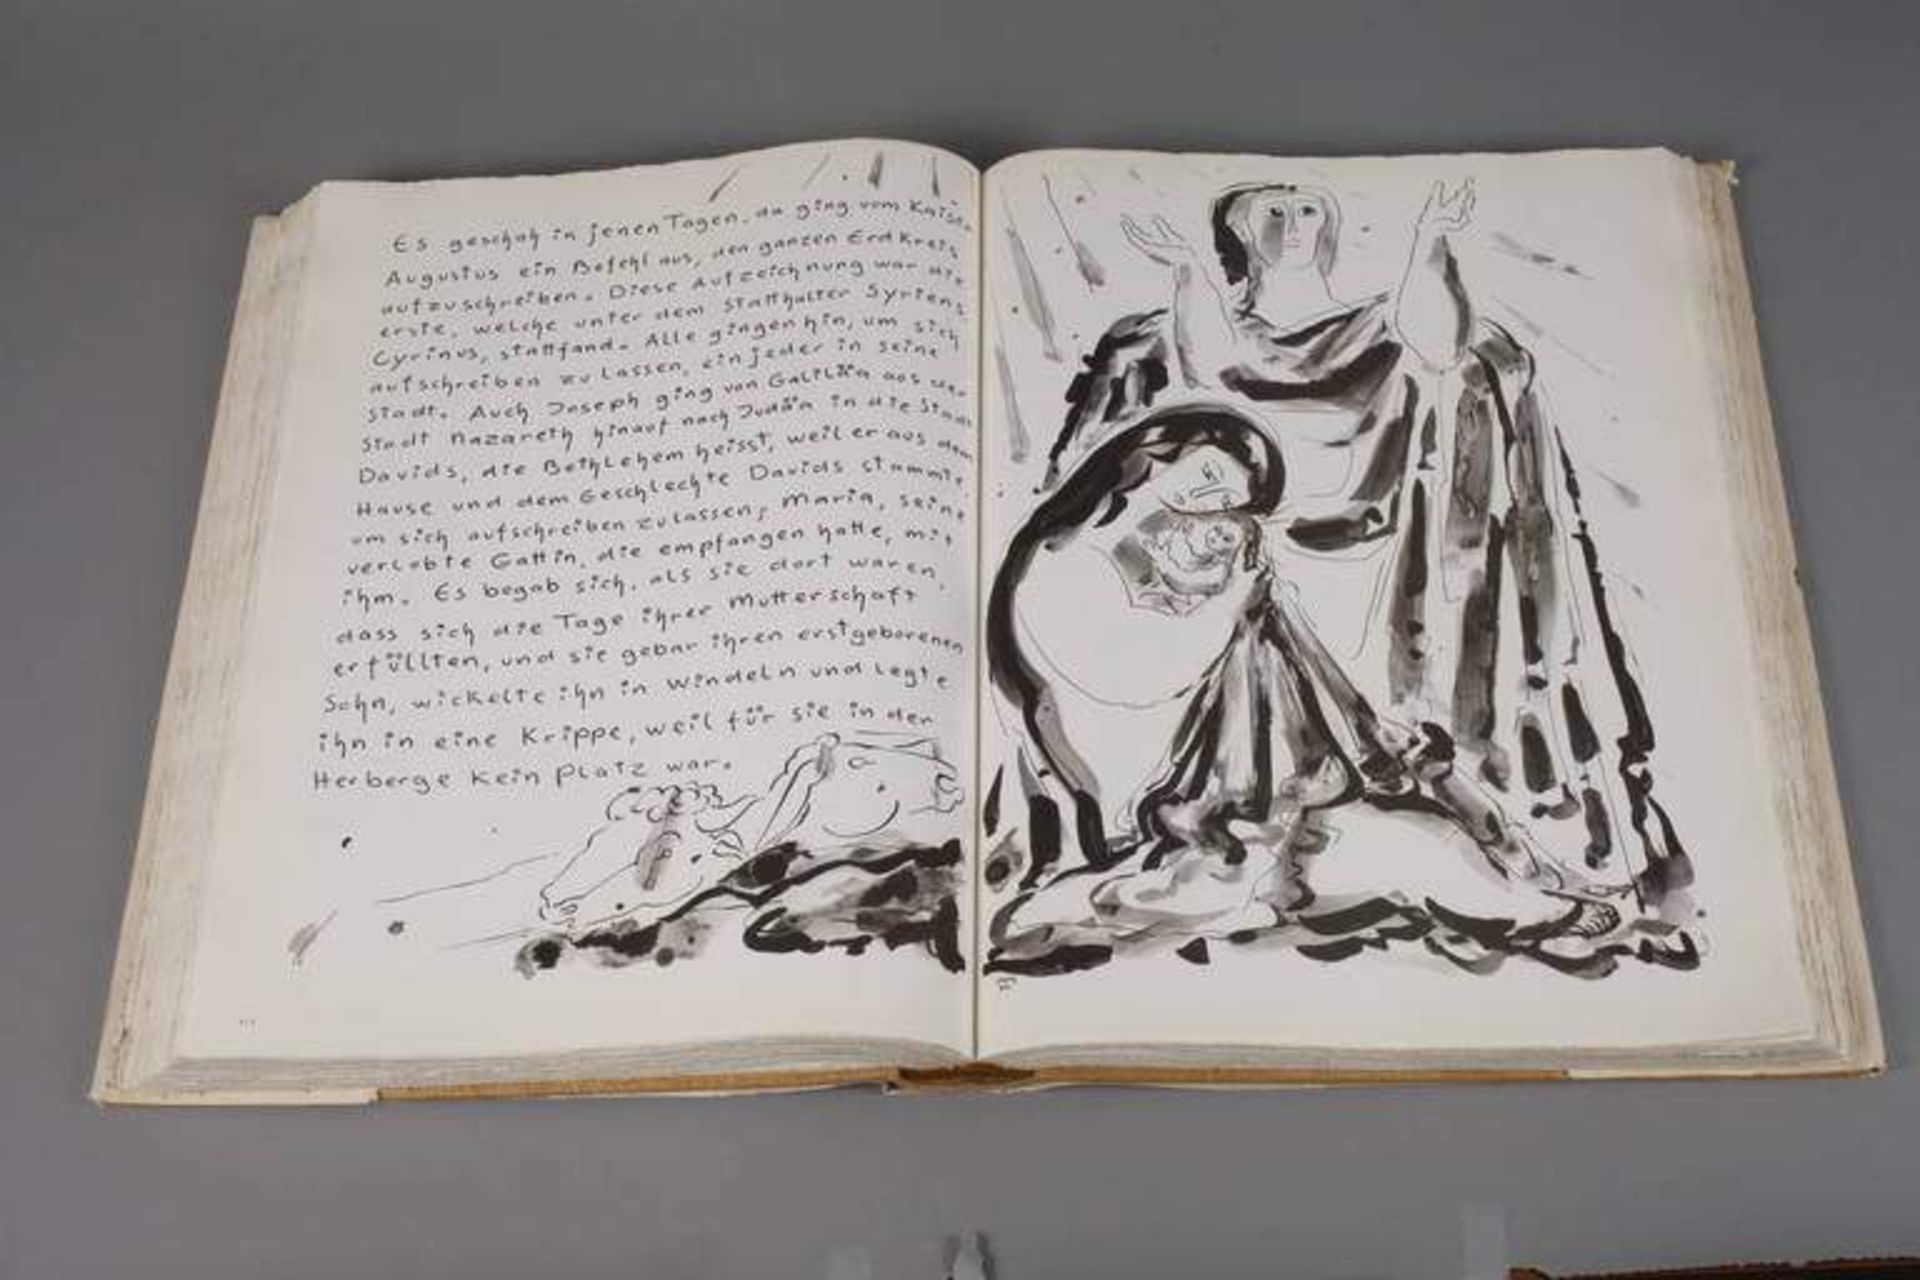 Es geschah in jenen Tagen, da ging vom Kaiser
Augustus ein Befehl aus, den ganzen Erdkreis
aufzuschreiben. Diese Aufzeichnung war die
erste, welche unter dem Statthalter Syriens
Cyrinus, stattfand. Alle gingen hin, um sich
aufschreiben zu lassen, ein jeder in seine
Stadt. Auch Joseph ging von Galiläa aus der
Stadt Nazareth hinauf nach Judäa in die Stadt
Davids, die Bethlehem heisst, weil er aus dem
Hause und dem Geschlechte Davids stammte,
um sich aufschreiben zu lassen, Maria, seine
verlobte Gattin, die empfangen hatte, mit
ihm. Es begab sich, als sie dort waren,
dass sich die Tage ihrer Mutterschaft
erfüllten, und sie gebar ihren erstgeborenen
Sohn, wickelte ihn in Windeln und legte
ihn in eine Krippe, weil für sie in der
Herberge kein Platz war.